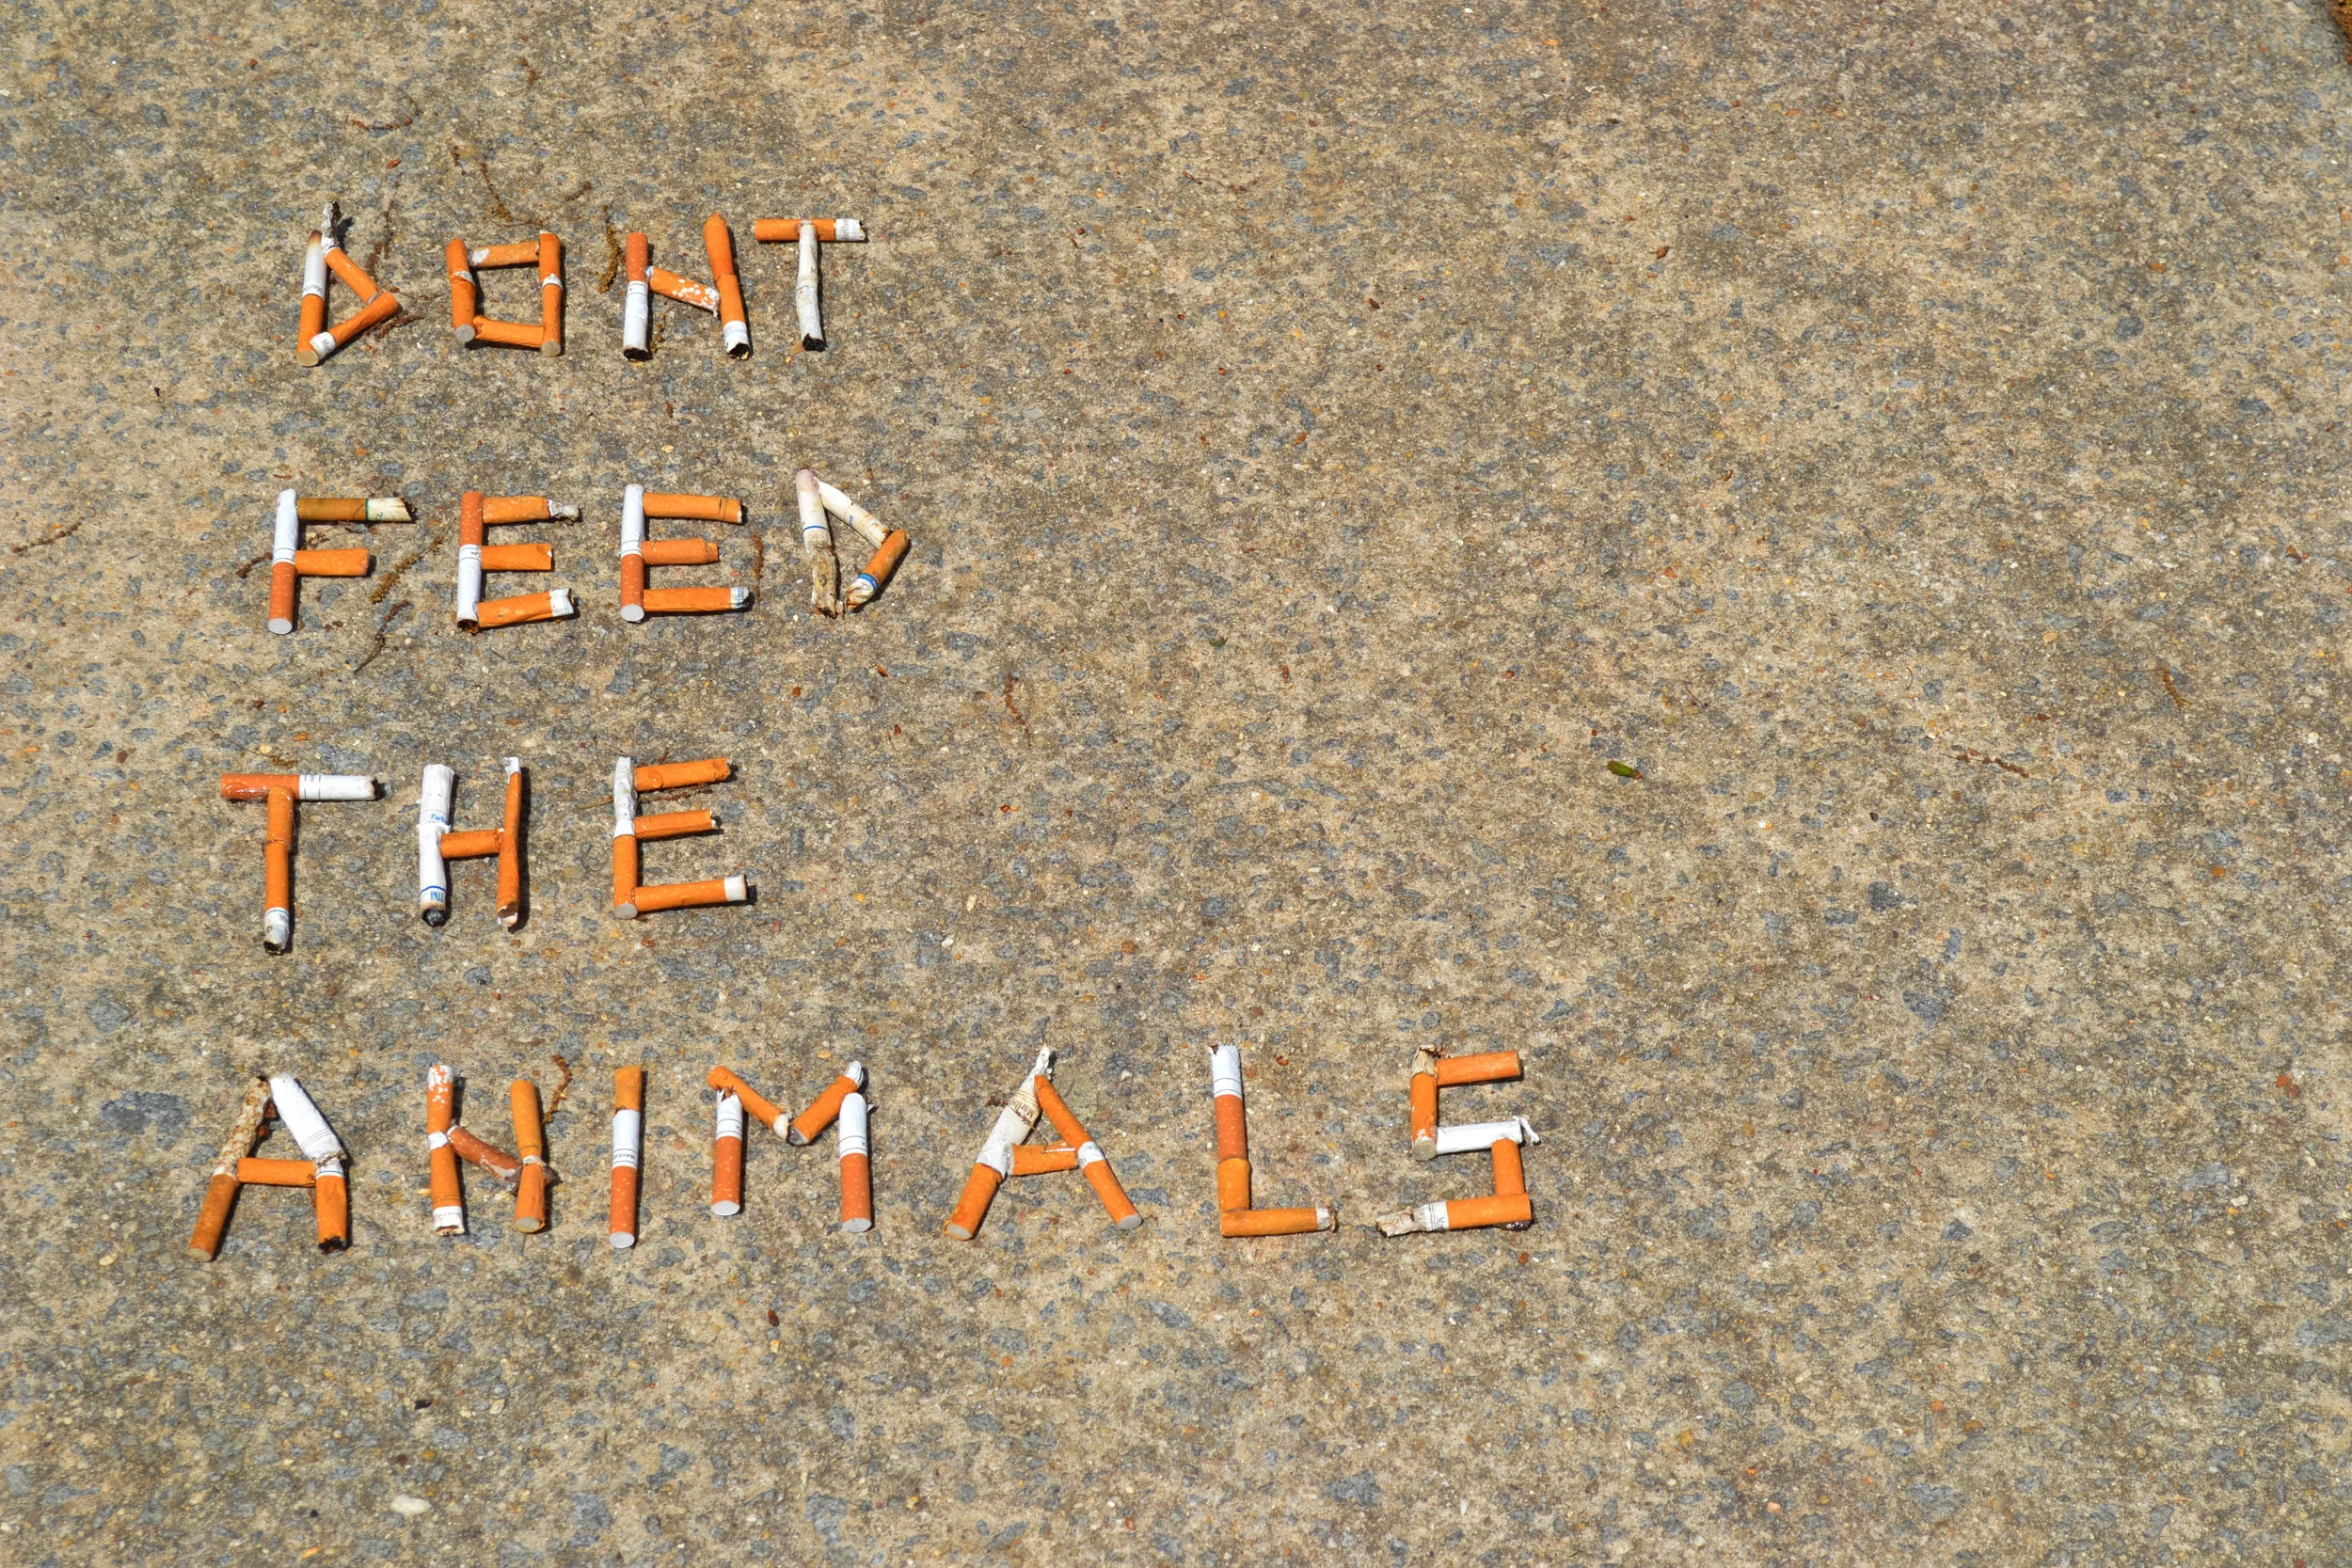 DONT
FEED
THE
ANIMALS